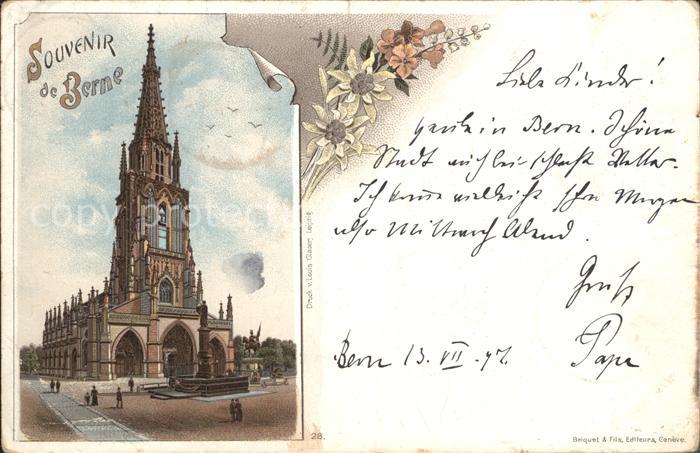 SOUVENIR
de Berne
Liebe Kinder!
Heute in Bern. Schöne
Stadt auch bei schlecht Wetter.
Ich komme vielleicht schon Morgen
also Mittwoch Abend.
Gruß
Papa
Bern 13. VII. 97.
Druck v. Louis Glaser, Leipzig
28.
Briquet & Fils, Editeurs, Genève.